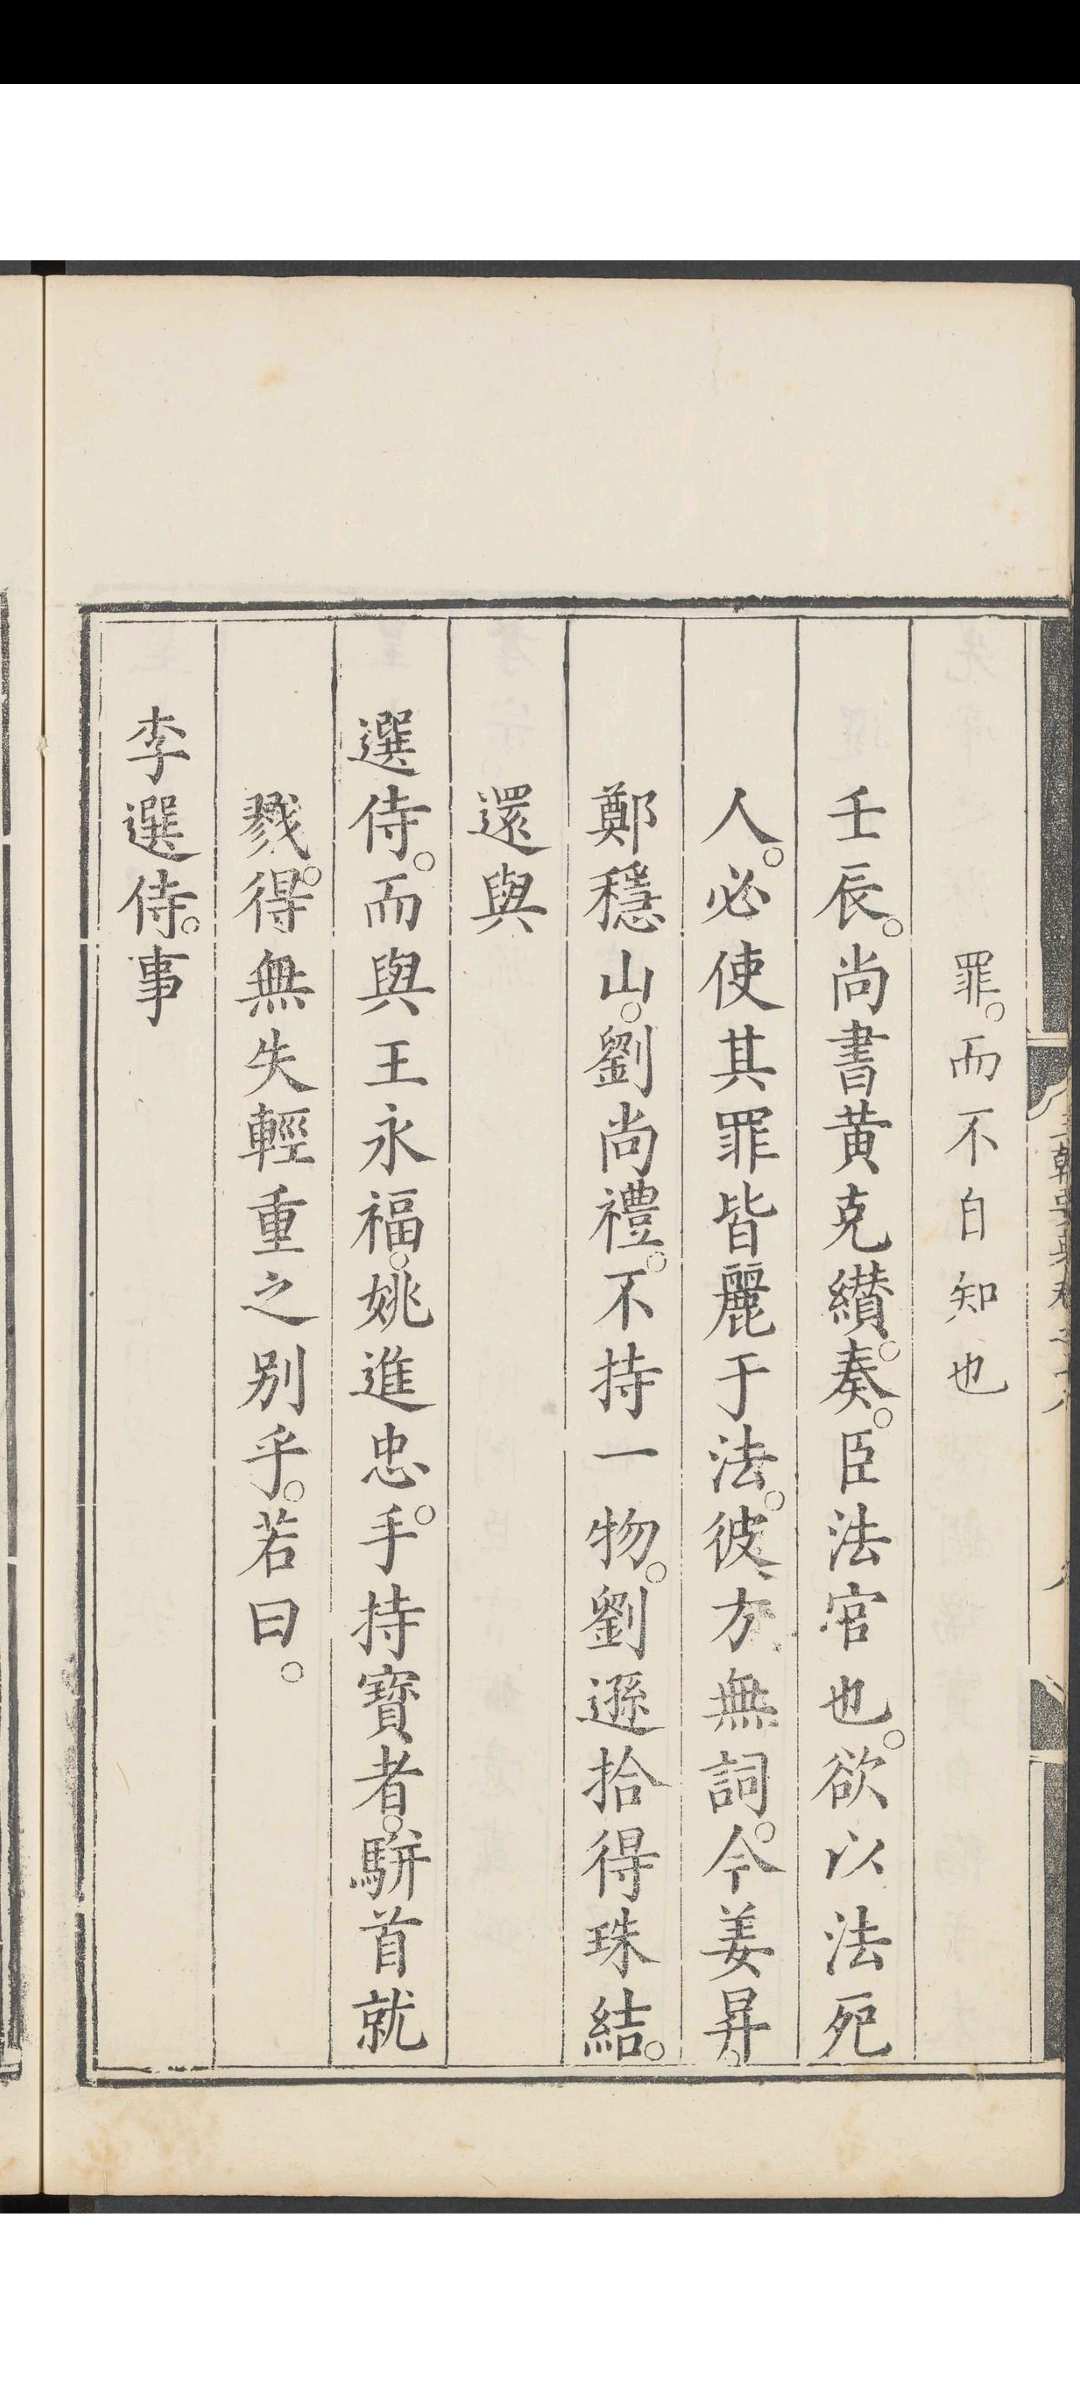 罪。而不自知也
壬辰。尚書黄克纘。奏。臣法官也。欲以法死
人。必使其罪皆麗于法。彼方無詞。今姜昇。
鄭穩山。劉尚禮。不持一物。劉遜拾得珠結。
還與
選侍。而與王永福。姚進忠。手持寶者。駢首就
戮。得無失輕重之别乎。若曰。
李選侍。事